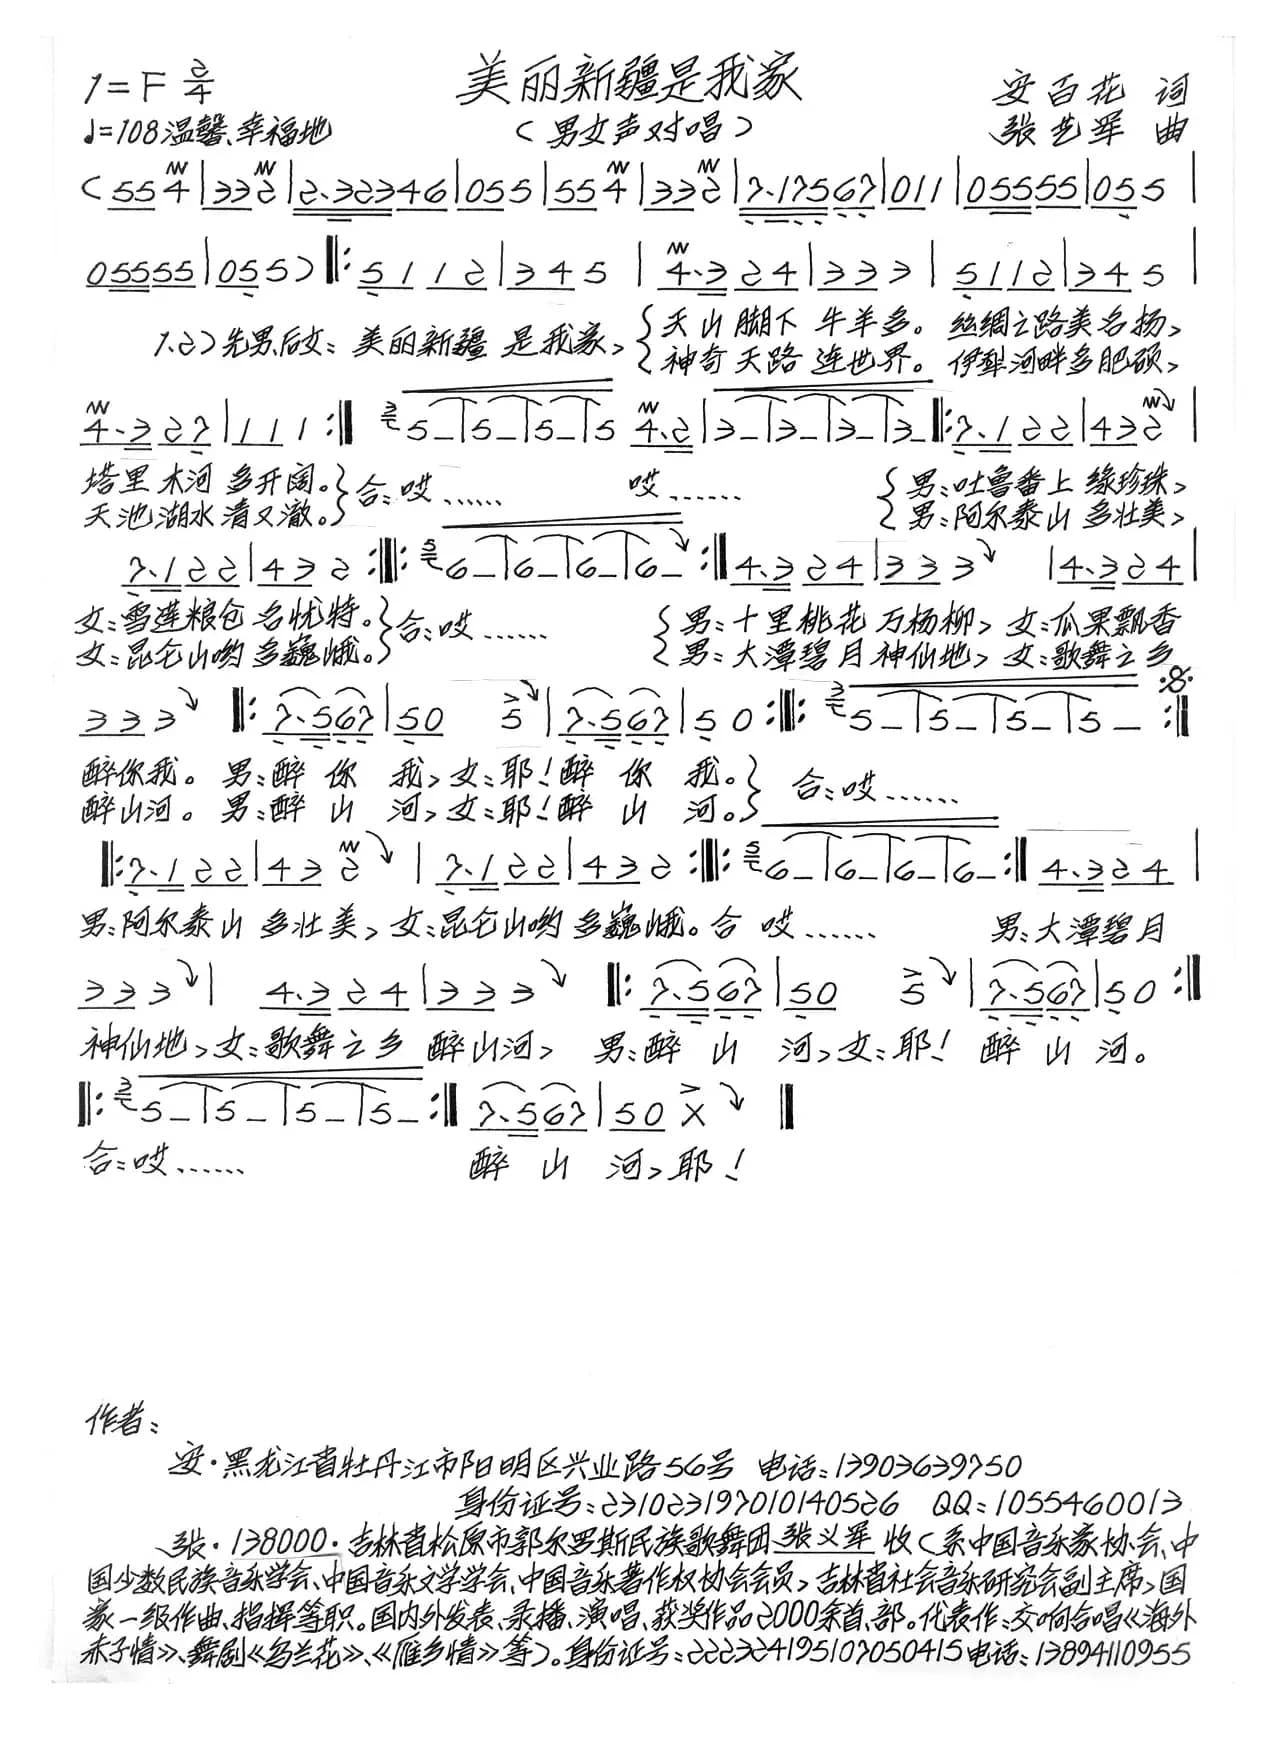 1=F 2/4 美丽新疆是我家 安百花 词
♩=108 温馨、幸福地 (男女声对唱) 张艺军 曲
(55 4|33 2|2·32346|05 5|55 4|33 2|7·17567|011|05555|05 5|
05555|05 5)‖:5112|34 5|4·3 24|33 3|5112|34 5|
1.2)先男、后女: 美丽新疆 是我家, {天山脚下 牛羊多。 丝绸之路美名扬,
{神奇天路 连世界。 伊犁河畔多肥硕,
4·3 27|11 1:‖ 5_|5_|5_|5 4·2|3_|3_|3_|3_‖:7·1 22|43 2|
塔里木河 多开阔。} 合:哎…… 哎…… {男:吐鲁番上 缘珍珠,
天池湖水 清又澈。} {男:阿尔泰山 多壮美,
7·1 22|43 2:‖: 6_|6_|6_|6_:‖4·3 24|33 3 |4·3 24|
女:雪莲粮仓 名优特。} 合:哎…… {男:十里桃花 万杨柳, 女:瓜果飘香
女:昆仑山哟 多巍峨。} {男:大潭碧月 神仙地, 女:歌舞之乡
33 3 ‖:7·5 67|50 5|7·5 67|5 0:‖: 5_|5_|5_|5_:‖
醉你我。 男:醉 你 我, 女:耶!醉 你 我。} 合:哎……
醉山河。 男:醉 山 河, 女:耶!醉 山 河。}
‖:7·1 22|43 2 |7·1 22|43 2:‖: 6_|6_|6_|6_:‖4·3 24|
男:阿尔泰山 多壮美, 女:昆仑山哟 多巍峨。合 哎…… 男:大潭碧月
33 3 | 4·3 24|33 3 ‖:7·5 67|50 5|7·5 67|5 0:‖
神仙地, 女:歌舞之乡 醉山河, 男:醉 山 河, 女:耶! 醉 山 河。
‖: 5_|5_|5_|5_:‖ 7·5 67|50 X ‖
合:哎…… 醉 山 河, 耶!
作者:
安·黑龙江省牡丹江市阳明区兴业路56号 电话:13903639750
身份证号:231023197010140526 QQ:1055460013
张·138000·吉林省松原市郭尔罗斯民族歌舞团张义军 收(系中国音乐家协会、中
国少数民族音乐学会、中国音乐文学学会、中国音乐著作权协会会员,吉林省社会音乐研究会副主席,国
家一级作曲、指挥等职。国内外发表、录播、演唱、获奖作品2000余首、部。代表作:交响合唱《海外
赤子情》、舞剧《乌兰花》、《雁乡情》等)。身份证号:222324195107050415电话:13894110955